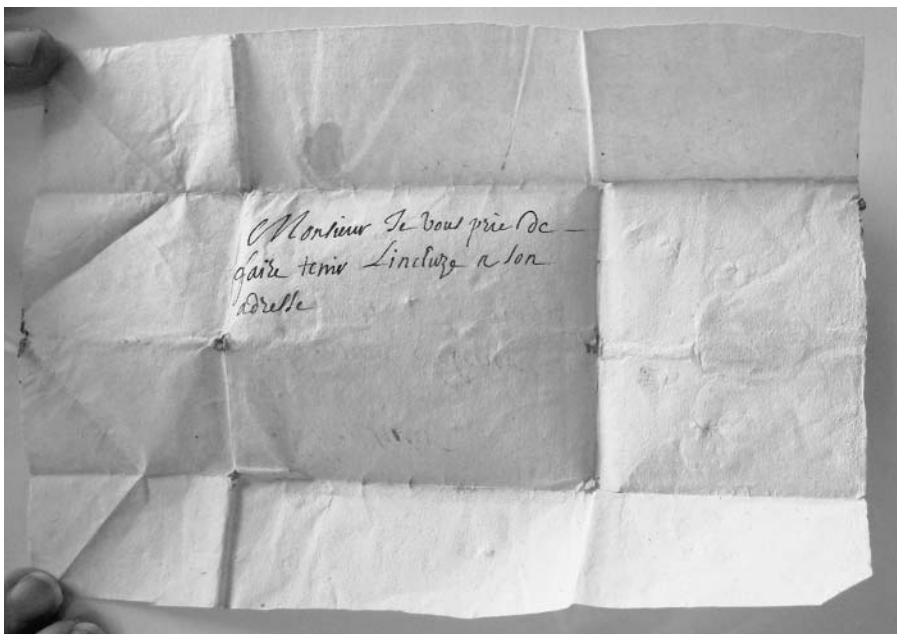 Monsieur Je vous prie de –
faire tenir Lincluze a son
adresse